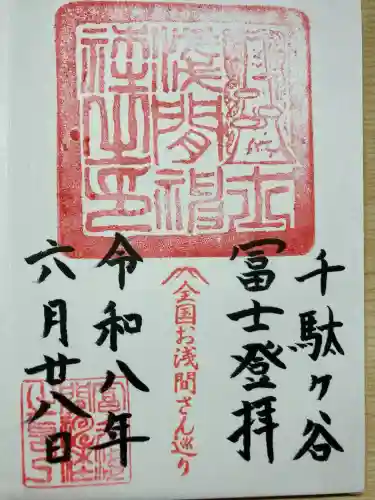 千駄ヶ谷
冨士登拝
全国お浅間さん巡り
令和八年
六月廿八日